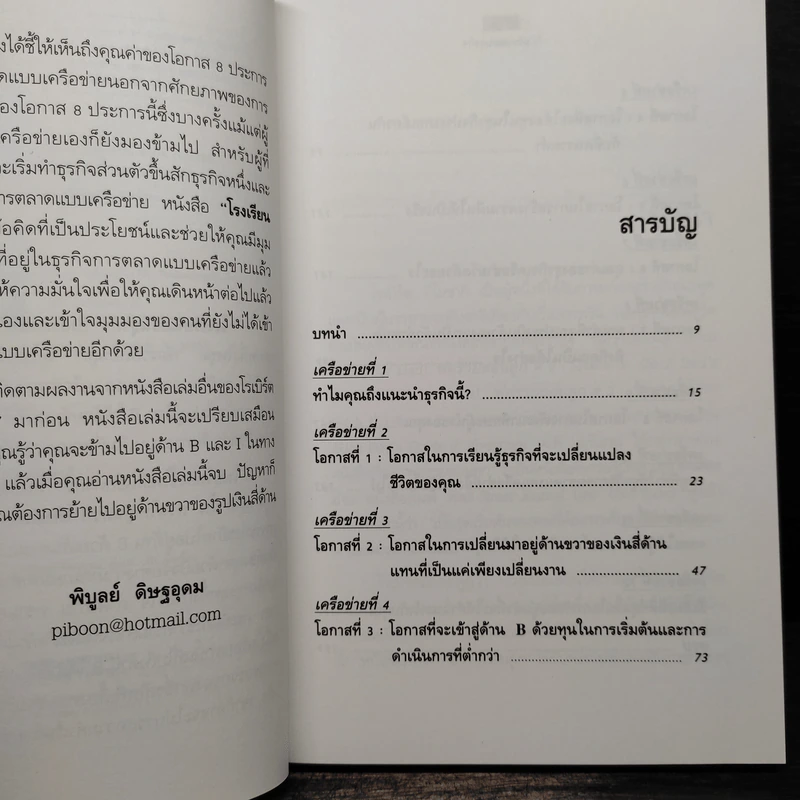 งได้ชี้ให้เห็นถึงคุณค่าของโอกาส 8 ประการ
ดแบบเครือข่ายนอกจากศักยภาพของการ
องโอกาส 8 ประการนี้ซึ่งบางครั้งแม้แต่ผู้
ครือข่ายเองก็ยังมองข้ามไป สำหรับผู้ที่
ะเริ่มทำธุรกิจส่วนตัวขึ้นสักธุรกิจหนึ่งและ
ารตลาดแบบเครือข่าย หนังสือ "โรงเรียน
้อคิดที่เป็นประโยชน์และช่วยให้คุณมีมุม
ที่อยู่ในธุรกิจการตลาดแบบเครือข่ายแล้ว
ห้ความมั่นใจเพื่อให้คุณเดินหน้าต่อไปแล้ว
เองและเข้าใจมุมมองของคนที่ยังไม่ได้เข้า
แบบเครือข่ายอีกด้วย
ติดตามผลงานจากหนังสือเล่มอื่นของโรเบิร์ต
มาก่อน หนังสือเล่มนี้จะเปรียบเสมือน
ุณรู้ว่าคุณจะข้ามไปอยู่ด้าน B และ I ในทาง
แล้วเมื่อคุณอ่านหนังสือเล่มนี้จบ ปัญหาก็
ณต้องการย้ายไปอยู่ด้านขวาของรูปเงินสี่ด้าน
พิบูลย์ ดิษฐอุดม
piboon@hotmail.com
สารบัญ
บทนำ ........................................ 9
เครือข่ายที่ 1
ทำไมคุณถึงแนะนำธุรกิจนี้? ........................................ 15
เครือข่ายที่ 2
โอกาสที่ 1 : โอกาสในการเรียนรู้ธุรกิจที่จะเปลี่ยนแปลง
ชีวิตของคุณ ........................................ 23
เครือข่ายที่ 3
โอกาสที่ 2 : โอกาสในการเปลี่ยนมาอยู่ด้านขวาของเงินสี่ด้าน
แทนที่เป็นแค่เพียงเปลี่ยนงาน ........................................ 47
เครือข่ายที่ 4
โอกาสที่ 3 : โอกาสที่จะเข้าสู่ด้าน B ด้วยทุนในการเริ่มต้นและการ
ดำเนินการที่ต่ำกว่า ........................................ 73